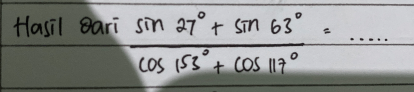 Hasil dari sin 27° + sin 63° = .....
cos 153° + cos 117°